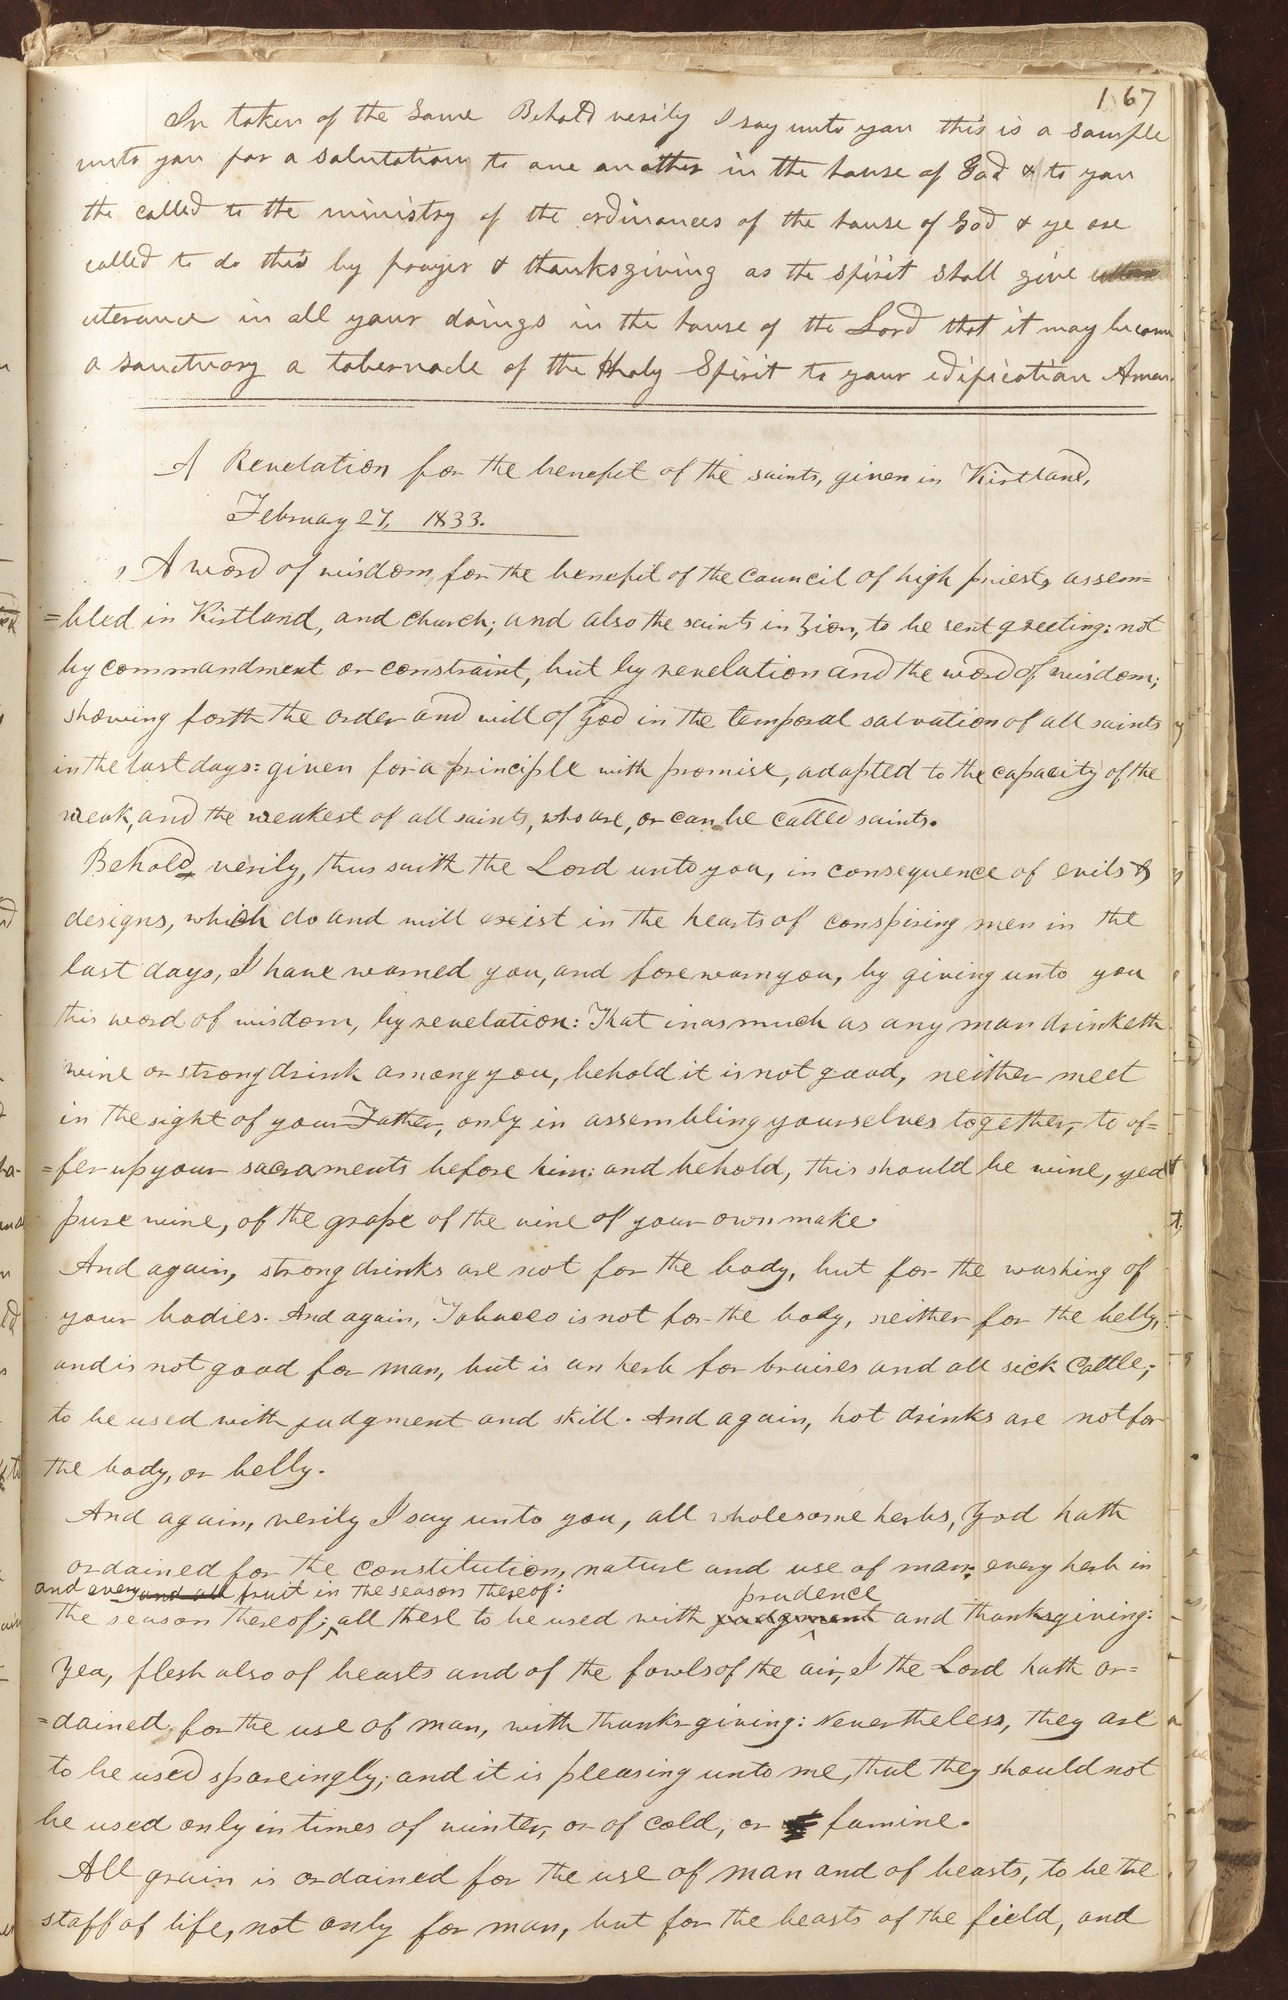 167
In token of the Same Behold verily I say unto you this is a sample
unto you for a salutation to one another in the house of God & to you
the called to the ministry of the ordinances of the house of God & ye are
called to do this by prayer & thanksgiving as the spirit shall give
uterance in all your doings in the house of the Lord that it may become
a sanctuary a tabernacle of the Holy Spirit to your edification Amen.
A Revelation for the benefit of the saints, given in Kirtland,
February 27, 1833.
A word of wisdom, for the benefit of the council of high priests, assem=
=bled in Kirtland, and church; and also the saints in Zion, to be sent greeting: not
by commandment or constraint, but by revelation and the word of wisdom;
showing forth the order and will of God in the temporal salvation of all saints
in the last days: given for a principle with promise, adapted to the capacity of the
weak, and the weakest of all saints, who are, or can be called saints.
Behold, verily, thus saith the Lord unto you, in consequence of evils &
designs, which do and will exist in the hearts of conspiring men in the
last days, I have warned you, and forewarn you, by giving unto you
this word of wisdom, by revelation: That inasmuch as any man drinketh
wine or strong drink among you, behold it is not good, neither meet
in the sight of your Father, only in assembling yourselves together, to of=
=fer up your sacraments before him: and behold, this should be wine, yea
pure wine, of the grape of the vine of your own make.
And again, strong drinks are not for the body, but for the washing of
your bodies. And again, Tobacco is not for the body, neither for the belly,
and is not good for man, but is an herb for bruises and all sick Cattle,;
to be used with judgment and skill. And again, hot drinks are not for
the body, or belly.
And again, verily I say unto you, all wholesome herbs, God hath
ordained for the constitution, nature and use of man; every herb in
and every and all fruit in the season thereof: prudence
the season thereof; all these to be used with judgment and thanksgiving:
Yea, flesh also of beasts and of the fowls of the air, I the Lord hath or=
=dained for the use of man, with thanksgiving: Nevertheless, they are
to be used spareingly; and it is pleasing unto me, that they should not
be used only in times of winter, or of cold, or famine.
All grain is ordained for the use of man and of beasts, to be the
staff of life, not only for man, but for the beasts of the field, and